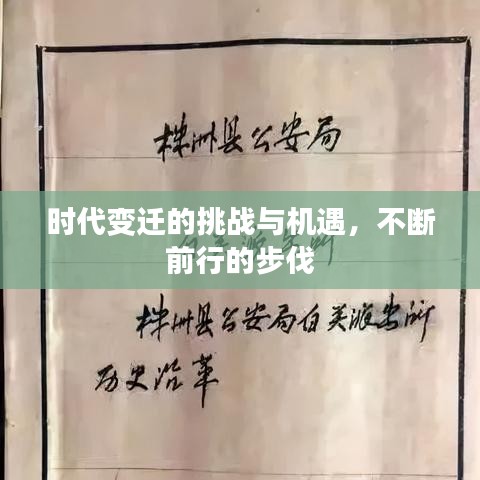 株洲县公安局
时代变迁的挑战与机遇，不断
前行的步伐
株洲县公安局白关派出所
历史沿革